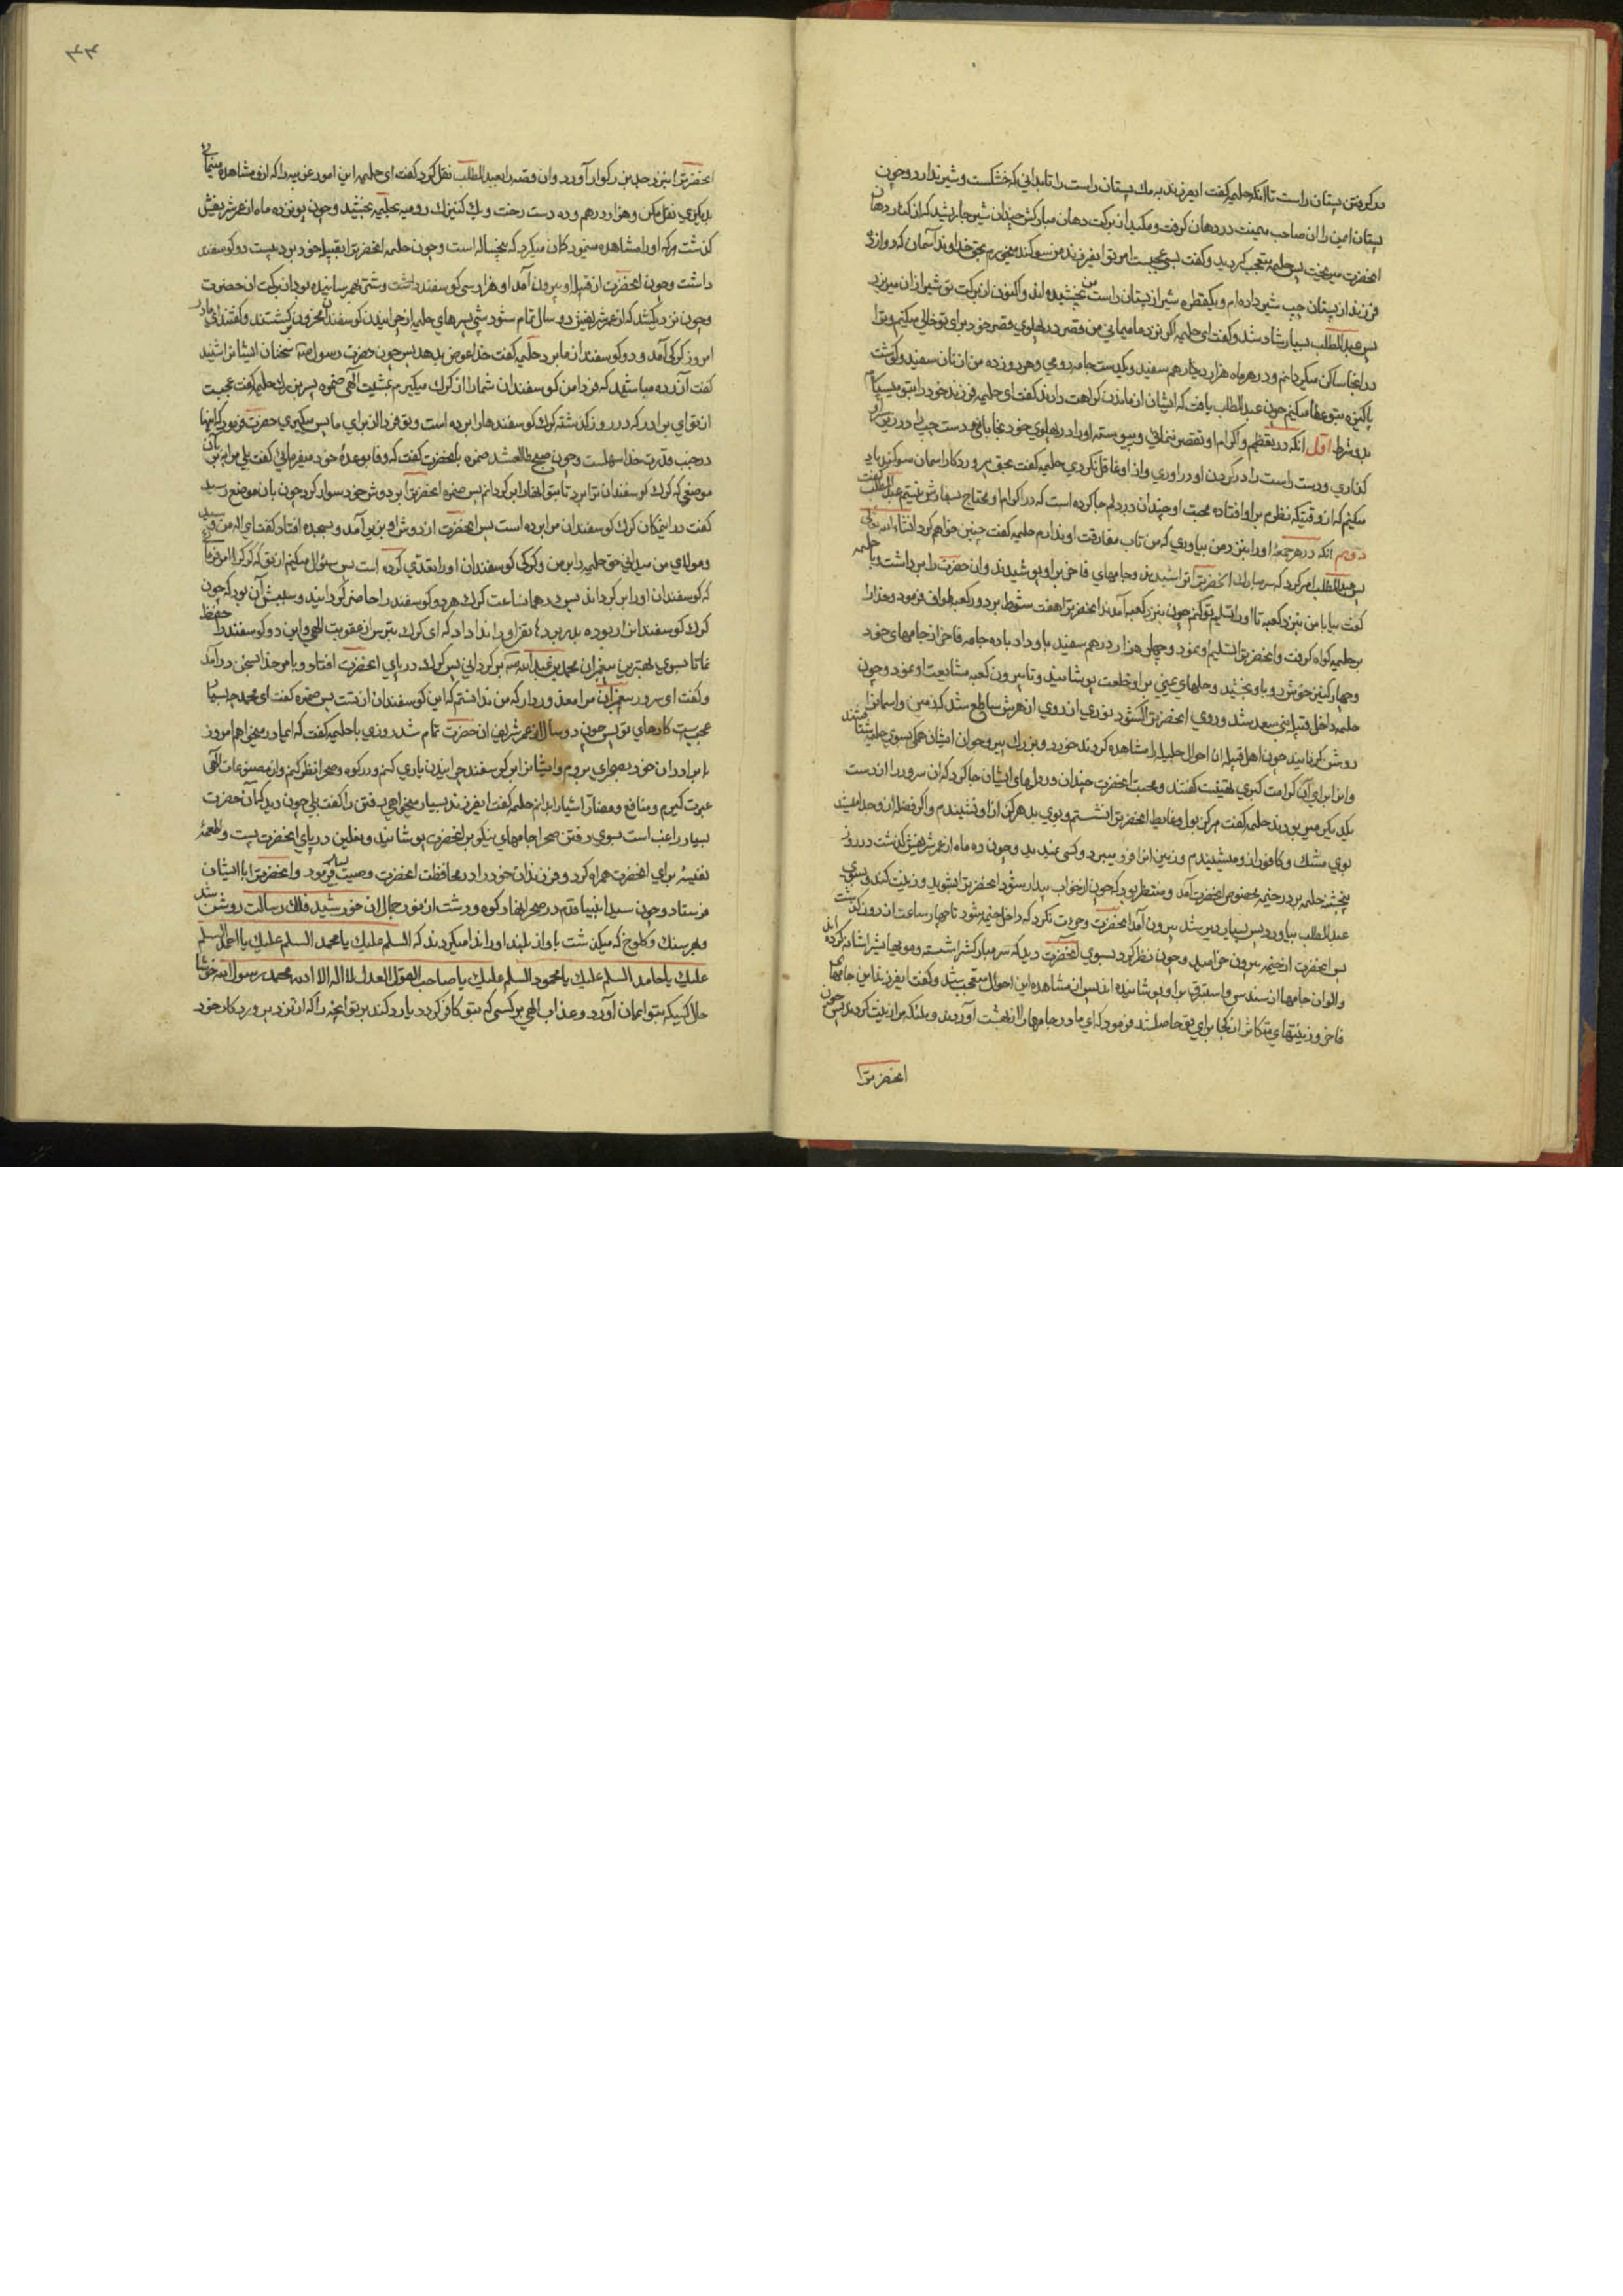 در گرفتن پستان راست تا آنکه حلیمه گفت ای فرزند به مك پستان راست را تا بدانی که خشکست و شیر ندارد و چون
پستان ایمن را ان صاحب میمنت در دهان گرفت و مکید از برکت دهان مبارکش چندان شیر جاری شد که از کنار دهان
انحضرت میریخت پس حلیمه متعجب گردید و گفت بسی عجبست امر تو ای فرزند من سوکند میخورم بحق خداوند آسمان که دوازده
فرزند از پستان چپ شیر داده ام و یکقطره شیر از پستان راست من نچشیده اند و اکنون از برکت تو شیر از ان میریزد
پس عبدالمطلب بسیار شاد شد و گفت ای حلیمه اگر نزد ما میمانی من قصری در پهلوی قصر خود برای تو خالی میکنم و ترا
در اینجا ساکن میگردانم و در هر ماه هزار درهم سفید و یکدست جامه رومی و هر روز ده من از نان سفید و گوشت
پاکیزه بتو عطا میکنم چون عبدالمطلب یافت که ایشان از ماندن کراهت دارند گفت ای حلیمه فرزند خود را بتو میسپارم
بدو شرط اول آنکه در تعظیم و اکرام او تقصیر ننمائی و پیوسته او را در پهلوی خود بخابانی و دست چپ را در زیر سر او
گذاری و دست راست را در گردن او در اوری و از او غافل نگردی حلیمه گفت بحق پروردگار اسمان سوکند یاد
میکنم که از وقتیکه نظرم بر او افتاده محبت او چندان در دلم جا کرده است که در اکرام او محتاج بسفارش نیستم عبدالمطلب گفت
دویم آنکه در هر جمعه او را بنزد من بیاوری که من تاب مفارقت او ندارم حلیمه گفت چنین خواهم کرد انشاء الله تعالی
پس عبدالمطلب امر کرد که سر مبارك انحضرترا تراشیدند و جامهای فاخر بر او پوشیدند و ان حضرت را برداشت و با حلیمه
گفت بیا با من بنزد کعبه تا او را تسلیم تو کنم چون بنزد کعبه آمدند انحضرترا هفت شوط بر دور کعبه طواف فرمود و خدا را
بر حلیمه گواه گرفت و انحضرترا تسلیم او نمود و چهار هزار درهم سفید باو داد با ده جامه فاخر از جامهای خود
و چهار کنیز خوش رو باو بخشید و حلهای یمنی بر او خلعت پوشانید و تا بیرون کعبه مشایعت او نمود و چون
حلیمه داخل قبیله بنی سعد شد و روی انحضرترا گشود نوری از روی ان سرور ساطع شد که زمین و اسمانرا
روشن گردانید چون اهل قبیله ان احوال جلیله را مشاهده کردند خورد و بزرك و پیر و جوان ایشان همگی بسوی حلیمه شتافتند
و او را برای آن کرامت کبری تهنیت گفتند و محبت انحضرت چندان در دلهای ایشان جا کرد که ان سرور را از دست
یکدیگر میربودند حلیمه گفت هرگز بول و غایط انحضرترا نشستم و بوی بد هرگز از او نشنیدم و اگر فضله از او جدا میشد
بوی مشك و کافور از او میشنیدم و زمین انرا فرو میبرد و کسی نمیدید و چون ده ماه از عمر شریفش گذشت در روز
پنجشنبه حلیمه بر در خیمه مخصوص انحضرت آمد و منتظر بود که چون از خواب بیدار شود انحضرترا بشوید و زینت کند و بسوی
عبدالمطلب بیاورد پس بسیار دیر شد بیرون آمدن انحضرت و جرءت نکرد که داخل خیمه شود تا چهار ساعت از روز گذشت
پس انحضرت از خیمه بیرون خرامید و چون نظر کرد بسوی انحضرت دید که سر مبارکشرا شسته و مویهایشرا شانه کرده اند
و الوان جامها از سندس و استبرق بر او پوشانیده اند پس از مشاهده این احوال متعجب شد و گفت ای فرزند این جامهای
فاخر و زینتهای متکاثر از کجا برای تو حاصل شد فرمود که ای مادر جامها را از بهشت آوردند و ملئکه مرا زینت کردند پس چون
انحضرترا
۴۴
انحضرترا بنزد جد بزرکوار آورد و ان قصه را بعبدالمطلب نقل کرد گفت ای حلیمه این امور غریبه را که از او مشاهده مینمائی
بدیگری نقل مکن و هزار درهم و ده دست رخت و یك کنیزك رومیه بحلیمه بخشید و چون پانزده ماه از عمر شریفش
گذشت هر که او را مشاهده مینمود گمان میکرد که پنجساله است و چون حلیمه انحضرترا بقبیله خود برد بیست دو کوسفند
داشت و چون انحضرت از قبیله او بیرون آمد او هزار سی کوسفند داشت و شتر بهم رسانیده بود از برکت ان حضرت
و چون نزدیك شد که از عمر شریفش دو سال تمام شود شبی پسرهای حلیمه از چرانیدن کوسفندان محزون برگشتند و گفتند ای مادر
امروز گرگی آمد و دو کوسفند از ما برد حلیمه گفت خدا عوض بدهد پس چون حضرت رسول ص سخنان ایشانرا شنید
گفت آزرده مباشید که فردا من کوسفندان شما را از گرك میگیرم بمشیت آلهی ضمره پسر بزرك حلیمه گفت عجبست
از تو ای برادر که در روز گذشته گرك کوسفندها را برده است و تو فردا از برای ما پس میگیری حضرت فرمود که اینها
در جنب قدرت خدا سهلست و چون صبح طالع شد ضمره بانحضرت گفت که وفا بوعدهٔ خود میفرمائی گفت بلی مرا ببر بآن
موضعی که گرك کوسفندان ترا برد تا بتو انها را برگردانم پس ضمره انحضرترا بر دوش خود سوار کرد چون بان موضع رسید
گفت در اینمکان گرك کوسفندان مرا برده است پس انحضرت از دوش او بزیر آمد و بسجده افتاد گفت ای اله من و سید من
و مولای من میدانی حق حلیمه را بر من و گرگ کوسفندان او را تعدی کرده است پس سئوال میکنم از تو که گرك را امر فرمائی
که کوسفندان او را بر گرداند پس در همان ساعت گرك هر دو کوسفند را حاضر گردانید و سببش آن بود که چون
گرك کوسفندانرا ربوده بدر برد هاتفی او را ندا داد که ای گرك بترس از عقوبت الهی و این دو کوسفند را حفظ
نما تا بسوی بهترین پیغمبران محمد بن عبدالله ص برگردانی پس گرك در پای انحضرت افتاد و بامر خدا بسخن درآمد
و گفت ای سرور پیغمبران مرا معذور دار که من ندانستم که این کوسفندان از تست پس ضمره گفت ای محمد چه بسیار
عجیبست کارهای تو پس چون دو سال از عمر شریف ان حضرت تمام شد روزی با حلیمه گفت که ای مادر میخواهم امروز
با برادران خود بصحرا بروم و ایشانرا بر کوسفند چرانیدن یاری کنم و در کوه و صحرا نظر کنم و از مصنوعات آلهی
عبرت گیرم و منافع و مضار اشیا را بدانم حلیمه گفت ای فرزند بسیار میخواهی رفتن را گفت بلی چون دید که آن حضرت
بسیار راغب است بسوی رفتن صحرا جامهای نیکو بر انحضرت پوشانید و نعلین در پای انحضرت بست و طعمهٔ
نفیسه برای انحضرت همراه کرد و فرزندان خود را در محافظت انحضرت وصیت بسیار نمود و انحضرترا با ایشان
فرستاد و چون سید انبیا قدم در صحرا نهاد کوه و دشت از نور جمال ان خورشید فلك رسالت روشن شد
و بهر سنك و کلوخ که میگذشت باواز بلند او را ندا میکردند که السلم علیك یا محمد السلم علیك یا احمد السلم
علیك یا حامد السلم علیك یا محمود السلم علیك یا صاحب القول العدل لا اله الا الله محمد رسول الله خوشا
حال کسیکه بتو ایمان آورد و عذاب الهی بر کسی که بتو کافر گردد یا رد کند بر تو انچه را که از نزد پروردگار خود